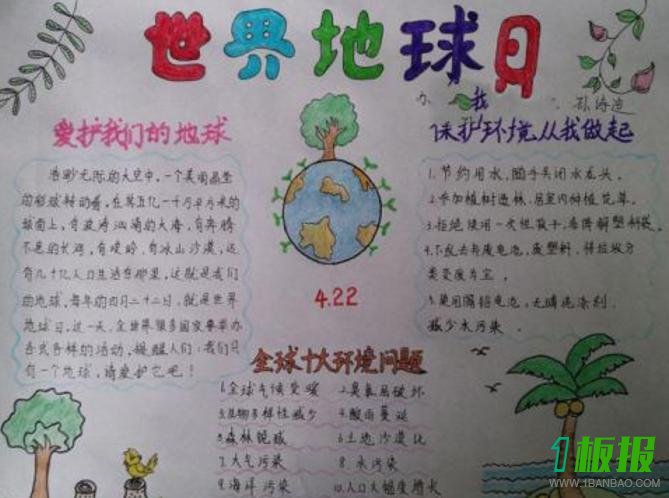 世界地球日
爱护我们的地球
浩瀚无际的太空中，一个美丽晶莹
的彩球转动着，在其五亿一千万平方米的
球面上，有波涛汹涌的大海，有奔腾
不息的长河，有峻岭，有冰山沙漠，还
有几十亿人口生活在那里，这就是我们
的地球，每年的四月二十二日，就是世界
地球日，这一天，全世界很多国家要举办
各式各样的活动，提醒人们：我们只
有一个地球，请爱护它吧！
4.22
保护环境从我做起
1.节约用水，随手关闭水龙头。
2.参加植树造林，居室内种植花草。
3.拒绝使用一次性筷子，
4.不乱丢弃废电池，废塑料，将垃圾分
类变废为宝。
5.使用 电池，无磷洗涤剂，
减少水污染。
全球十大环境问题
1.全球气候变暖
2.臭氧层破坏
3.生物多样性减少
4.酸雨蔓延
5.森林锐减
6.土地沙漠化
7.大气污染
8.水污染
9.海洋污染
10.人口大幅度增长
板报
WWW.1BANBAO.COM